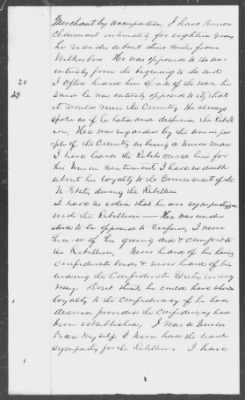 Merchant by occupation, I have known
claimant intimately for eighteen years
he resides about nine miles from
He was opposed to the war
entirely from the beginning to the end
20 I often heard him speak of the war, he
said he was entirely opposed to it, that
it would ruin the Country. He always
spoke as if he hated and despised the Rebel-
ion, He was regarded by the union peo-
ple of the Country as being a Union man
I have heard the Rebels curse him for
his Union sentiments I have no doubt
about his loyalty to the Government of the
U. States during the Rebellion
I have no idea that he ever sympathized
with the Rebellion — He was under
stood to be opposed to Secession, I never
heard of his giving aid & comfort to
the Rebellion, Never heard of his having
Confederate bonds & never heard of his
the Confederate States in any
way. Dont think he could have shown
loyalty to the Confederacy if he had
desired provided the Confederacy had
been established, I was a Union
man myself I never had the least
sympathy for the Rebellion, I have